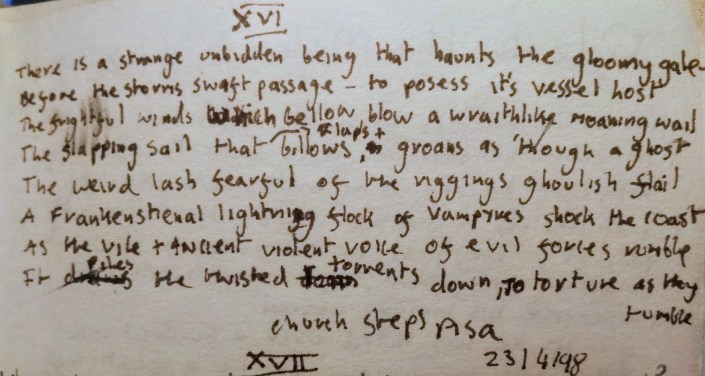 XVI
There is a strange unbidden being that haunts the gloomy gale
Before the storms swift passage - to posess it's vessel host
The frightful winds which bellow, blow a wraithlike moaning wail
The slapping sail that billows, flaps + groans as though a ghost
The weird lash fearful of the riggings ghoulish flail
A Frankenstienal lightning flock of vampyres shock the coast
As the vile + ancient violent voice of evil forces rumble
It piles the twisted torrents down, to torture as they tumble
Church steps Pisa
23/4/98
XVII